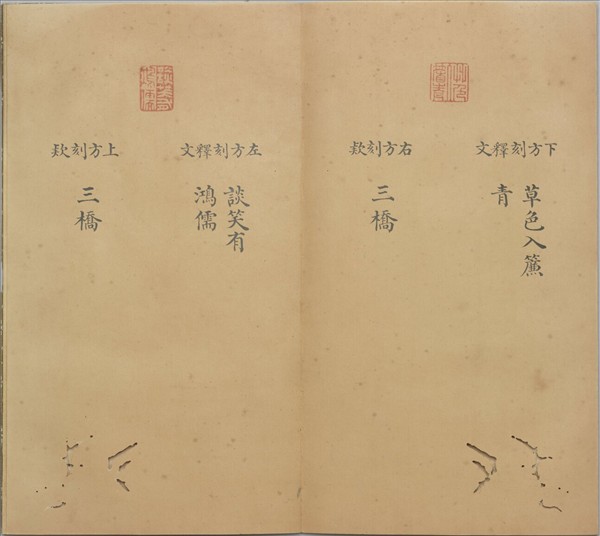 下方刻釋文
草色入簾
青
右方刻欵
三橋
左方刻釋文
談笑有
鴻儒
上方刻欵
三橋